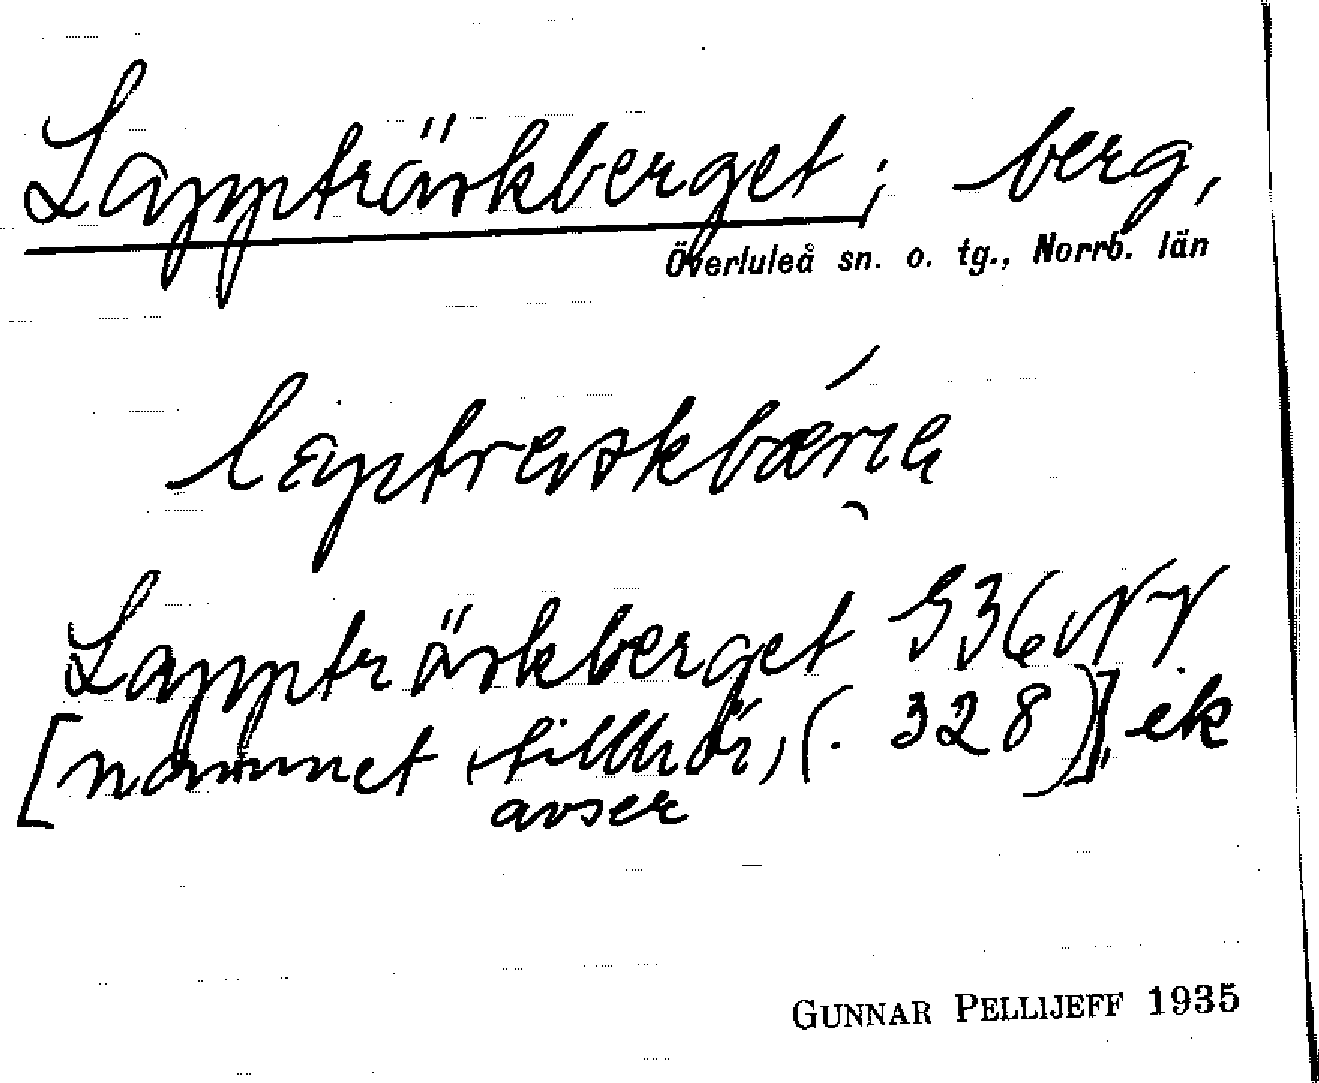 Lappträskberget; berg,
Överluleå sn. o. tg., Norrb. län
Lappträskberget 336 NV
[namnet tillhör, (. 328)] ek
avser
GUNNAR PELLIJEFF 1935